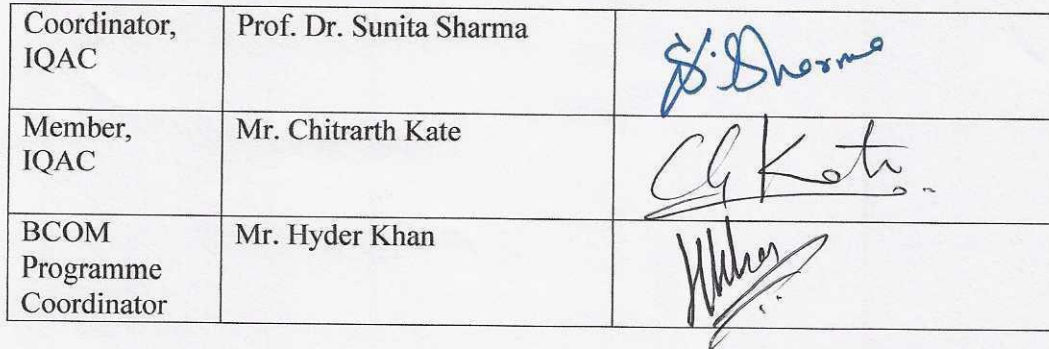 Coordinator,
IQAC
Prof. Dr. Sunita Sharma
S. Sharma
Member,
IQAC
Mr. Chitrarth Kate
BCOM
Programme
Coordinator
Mr. Hyder Khan